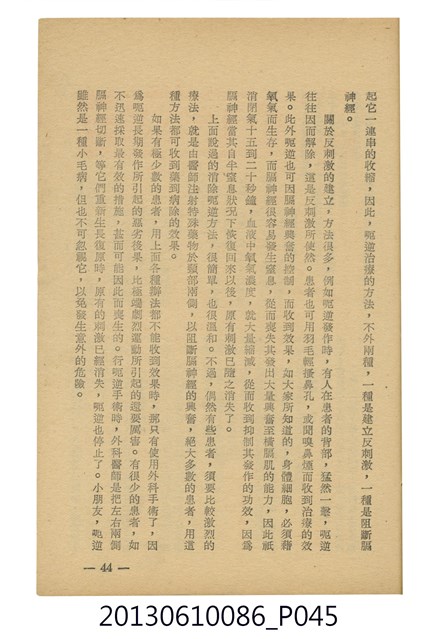 起它一連串的收縮，因此，呃逆治療的方法，不外兩種，一種是建立反刺激，一種是阻斷膈
神經。
關於反刺激的建立，方法很多，例如呃逆發作時，有人在患者的背部，猛然一擊，呃逆
往往因而解除，這是反刺激所使然。患者也可用羽毛輕搔鼻孔，或聞嗅鼻煙而收到治療的效
果。此外呃逆也可因膈神經興奮的控制，而收到效果，如大家所知道的，身體細胞，必須藉
氧氣而生存，而膈神經很容易發生窒息，從而喪失其發出大量興奮至橫膈肌的能力，因此祇
消閉氣十五到二十秒鐘，血液中氧氣濃度，就大量縮減，從而收到抑制其發作的功效，因爲
膈神經當其自半窒息狀況下恢復回來以後，原有刺激已隨之消失了。
上面說過的消除呃逆方法，很簡單，也很溫和。不過，偶然有些患者，須要比較激烈的
療法，就是由醫師注射特殊藥物於頸部兩側，以阻斷膈神經的興奮，絕大多數的患者，用這
種方法都可收到藥到病除的效果。
如果有極少數的患者，用上面各種辦法都不能收到效果時，那只有使用外科手術了，因
爲呃逆長期發作所引起的惡劣後果，比極端劇烈運動所引起的還要厲害。有很少的患者，如
不迅速採取最有效的措施，甚而可能因此而喪生的。行呃逆手術時，外科醫師是把左右兩側
膈神經切斷，等它們重新生長復原時，原有的刺激已經消失，呃逆也停止了。小朋友，呃逆
雖然是一種小毛病，但也不可忽視它，以免發生意外的危險。
— 44 —
20130610086_P045